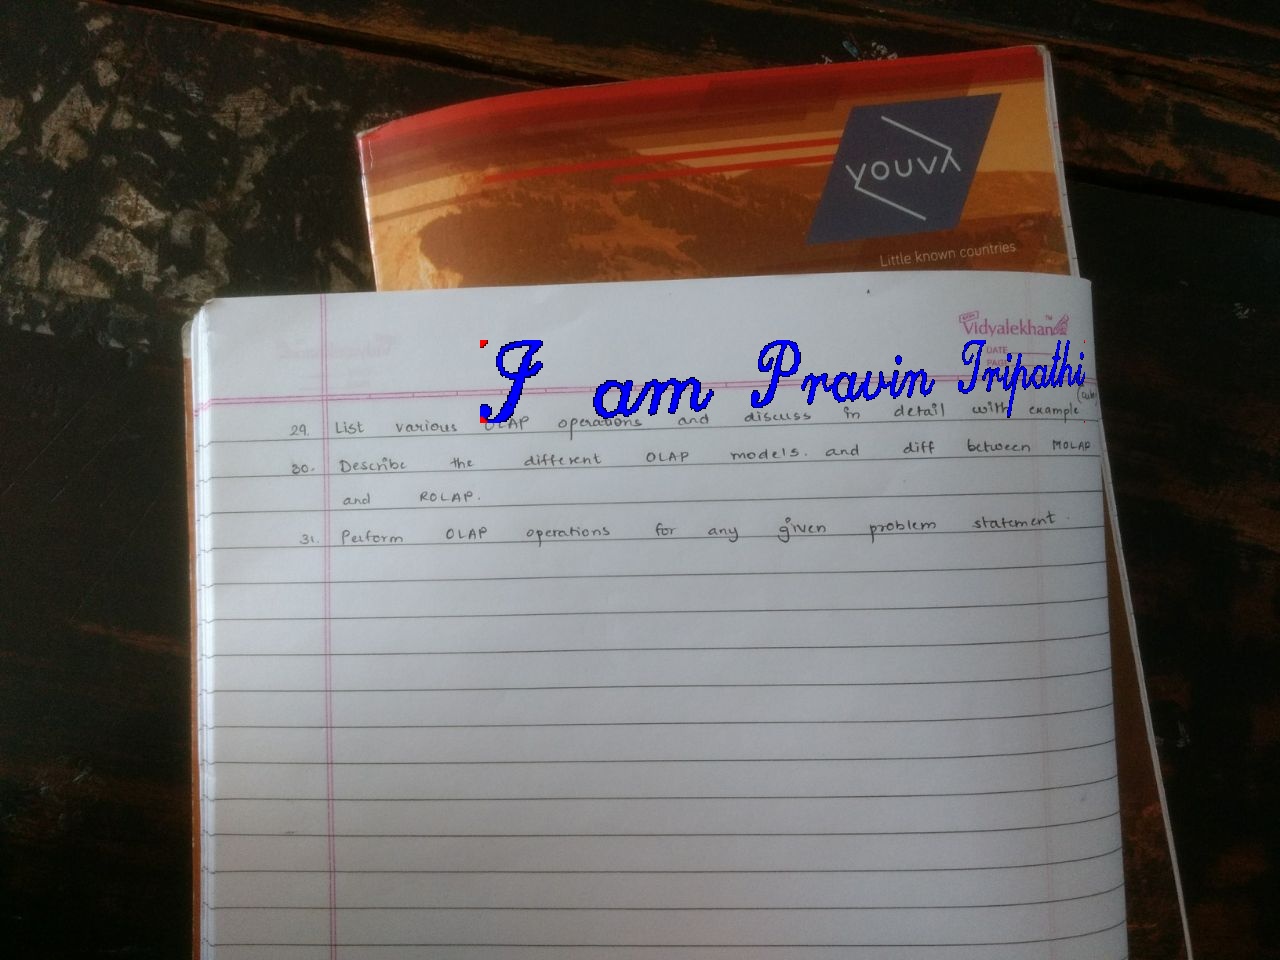 YOUVA
Little known countries
Vidyalekhan
DATE
I am Pravin Tripathi
29. List various OLAP operations and discuss in detail with example
30. Describe the different OLAP models. and diff between MOLAP
and ROLAP.
31. Perform OLAP operations for any given problem statement.